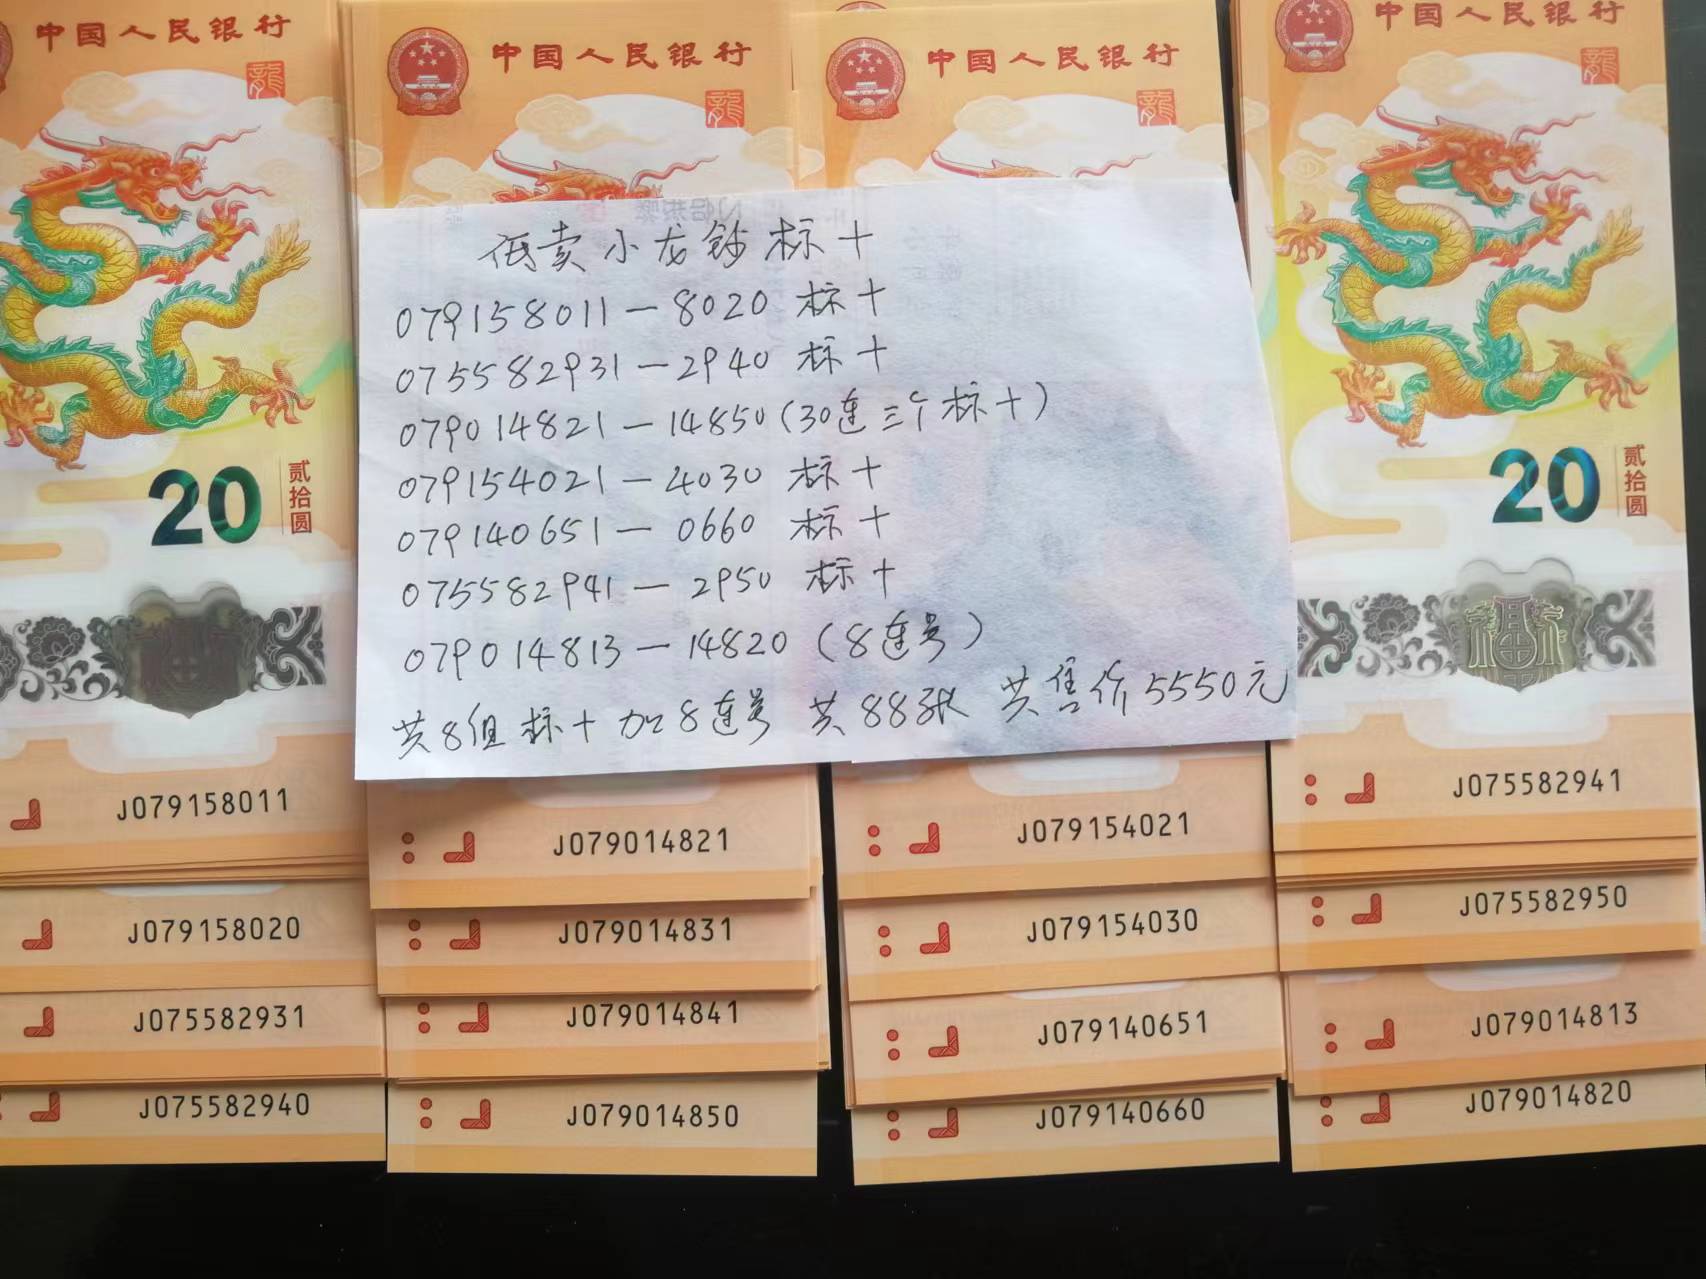 中国人民银行
龍
20
贰拾圆
J079158011
J079158020
J075582931
J075582940
中国人民银行
龍
J079014821
J079014831
J079014841
J079014850
中国人民银行
龍
J079154021
J079154030
J079140651
J079140660
中国人民银行
龍
20
贰拾圆
J075582941
J075582950
J079014813
J079014820
低卖小龙钞标十
079158011—8020 标十
075582931—2940 标十
079014821—14850(30连三个标十)
079154021—4030 标十
079140651—0660 标十
075582941—2950 标十
079014813—14820(8连号)
共8组标十加8连号 共88张 共售价5550元